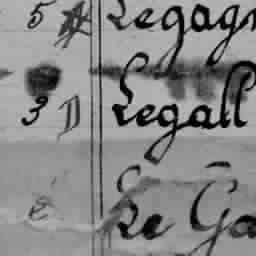 5 Legagn
3 D Legall
Le Ga